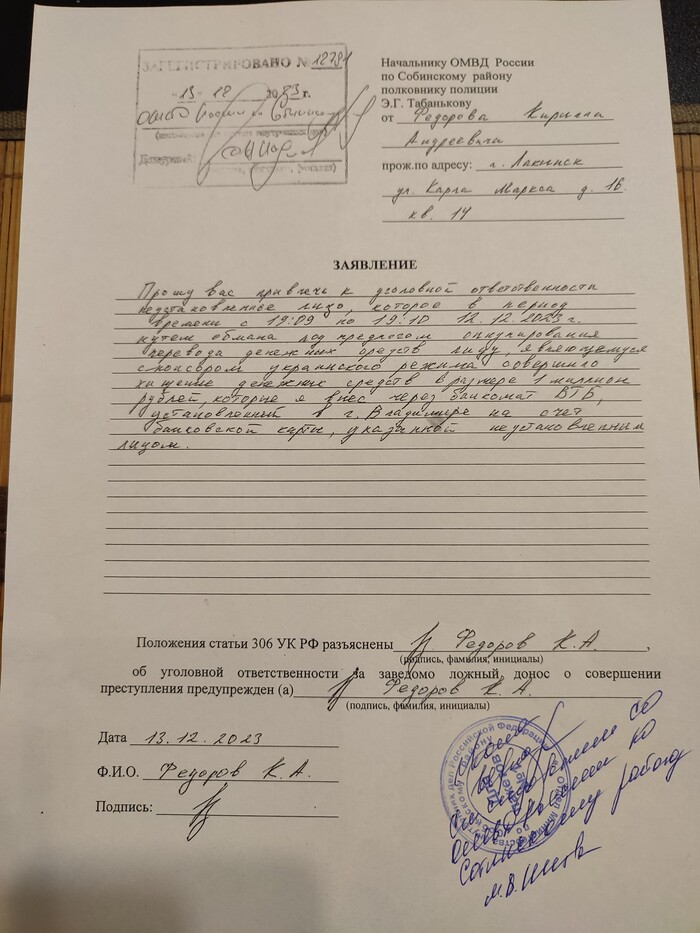 ЗАРЕГИСТРИРОВАНО № 12791
13 12 2023 г.
Начальнику ОМВД России
по Собинскому району
полковнику полиции
Э.Г. Табанькову
от Федорова Кирилла
Андреевича
прож.по адресу: г. Лакинск
ул. Карла Маркса д. 16
кв. 14
ЗАЯВЛЕНИЕ
Прошу вас привлечь к уголовной ответственности
неустановленное лицо, которое в период
времени с 19:09 по 19:10 12.12.2023 г.
путем обмана под предлогом аннулирования
перевода денежных средств лицу, являющемуся
спонсором украинского режима совершило
хищение денежных средств в размере 1 миллион
рублей, которые я внес через банкомат ВТБ,
установленный в г. Владимире на счет
банковской карты, указанной неустановленным
лицом.
Положения статьи 306 УК РФ разъяснены Федоров К.А.,
(подпись, фамилия, инициалы)
об уголовной ответственности за заведомо ложный донос о совершении
преступления предупрежден (а) Федоров К. А.
(подпись, фамилия, инициалы)
Дата 13.12.2023
Ф.И.О. Федоров К.А.
Подпись:
Собинскому району